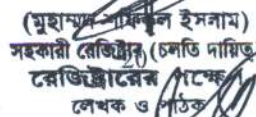 (মুহাম্মদ শফিকুল ইসলাম)
সহকারী রেজিস্ট্রার (চলতি দায়িত্ব
রেজিস্ট্রারের পক্ষে
লেখক ও পাঠক